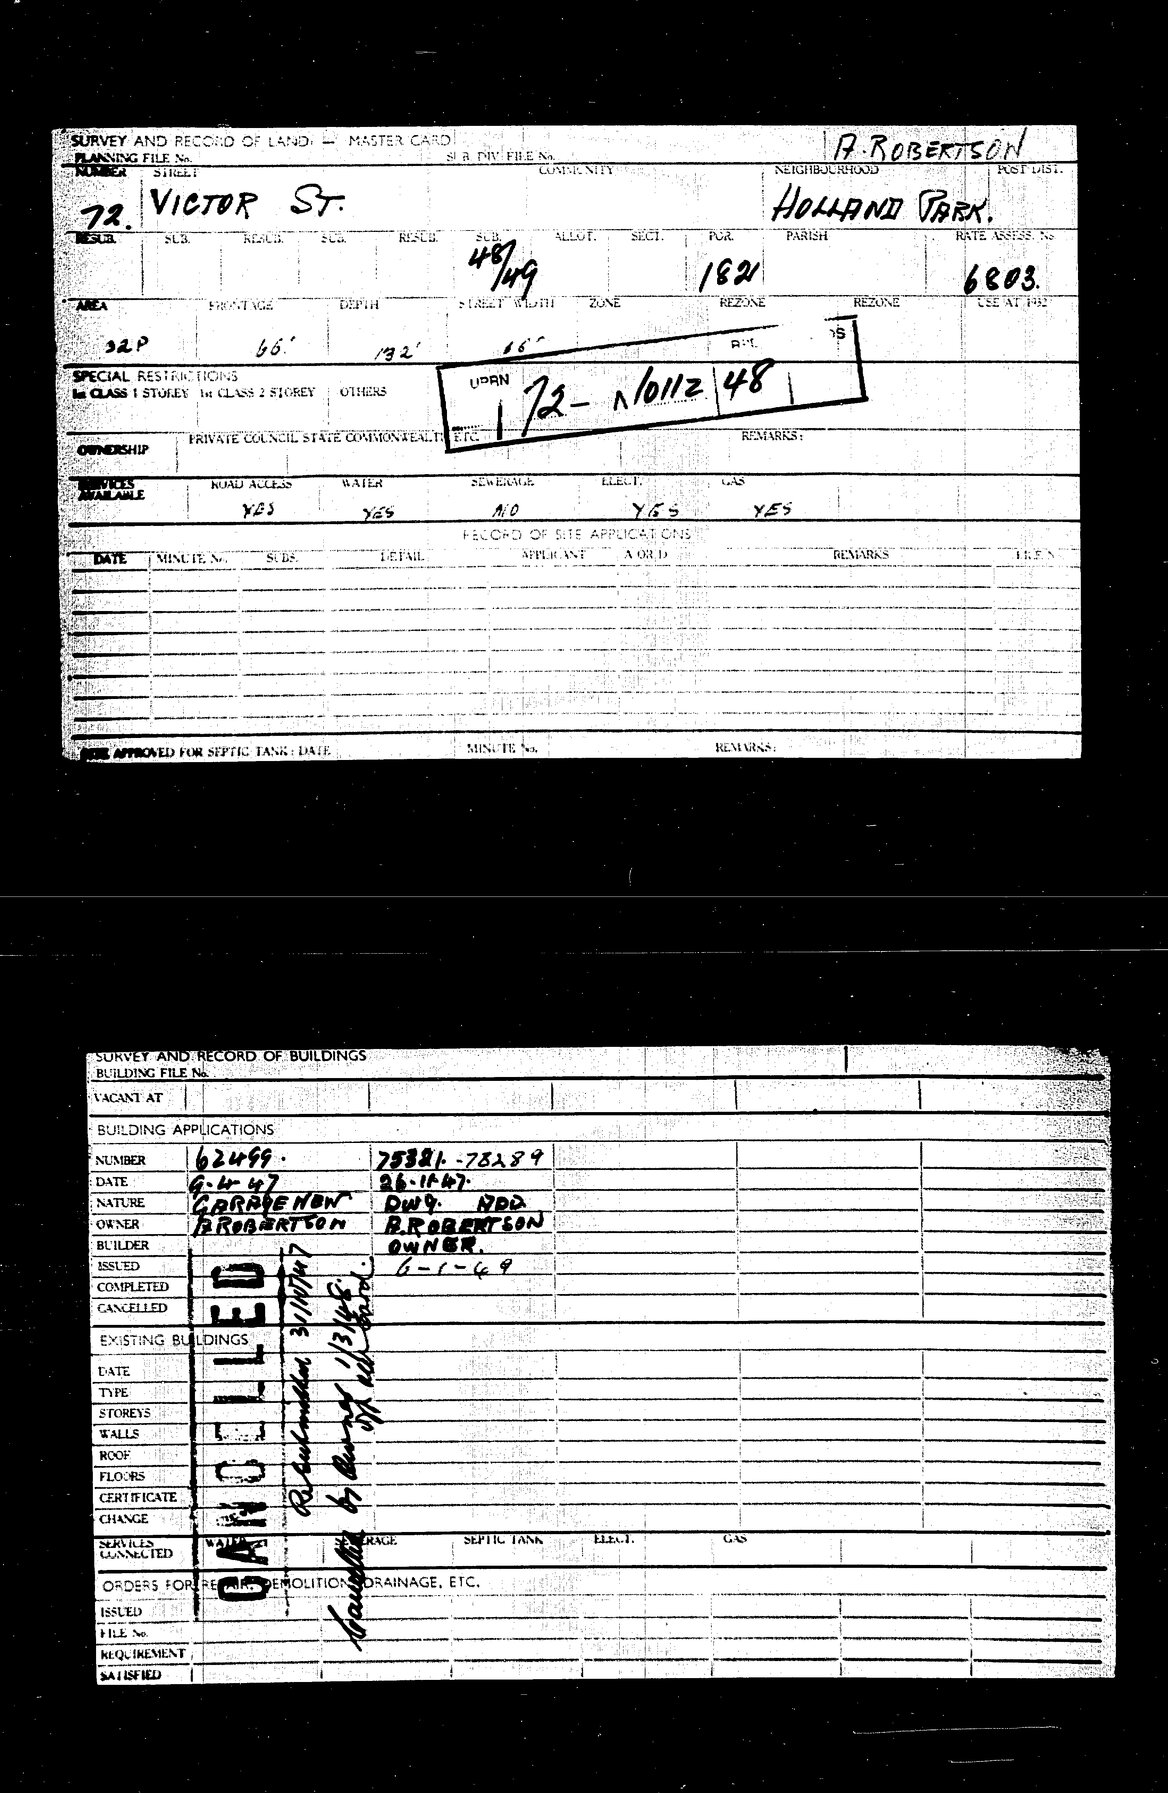 SURVEY AND RECORD OF LAND: — MASTER CARD
A. ROBERTSON
PLANNING FILE No. SUB DIV. FILE No.
NUMBER STREET COMMUNITY NEIGHBOURHOOD POST DIST.
72. VICTOR ST. HOLLAND PARK.
RESUB. SUB. RESUB. SUB. RESUB. SUB. ALLOT. SECT. POR. PARISH RATE ASSESS. No
48/49 182 6803.
AREA FRONTAGE DEPTH STREET WIDTH ZONE REZONE REZONE USE AT 1952
32P 66' 132' 66'
SPECIAL RESTRICTIONS
1st CLASS 1 STOREY 1st CLASS 2 STOREY OTHERS
UPRN 72- 48
OWNERSHIP PRIVATE COUNCIL STATE COMMONWEALTH ETC. REMARKS:
SERVICES AVAILABLE ROAD ACCESS WATER SEWERAGE ELECT. GAS
YES YES NO YES YES
RECORD OF SITE APPLICATIONS
DATE MINUTE No. SUBS. DETAIL APPLICANT A OR D REMARKS FILE N
SITE APPROVED FOR SEPTIC TANK: DATE MINUTE No. REMARKS:
SURVEY AND RECORD OF BUILDINGS
BUILDING FILE No.
VACANT AT
BUILDING APPLICATIONS
NUMBER 62499. 75321.-73289
DATE 9-4-47 26-11-47.
NATURE GARAGE NEW DWG. ADD
OWNER A ROBERTSON A.ROBERTSON
BUILDER OWNER.
ISSUED 6-1-49
COMPLETED
CANCELLED
EXISTING BUILDINGS
DATE
TYPE
STOREYS
WALLS
ROOF
FLOORS
CERTIFICATE
CHANGE
SERVICES CONNECTED WATER SEWERAGE SEPTIC TANK ELECT. GAS
ORDERS FOR REPAIR, DEMOLITION, DRAINAGE, ETC.
ISSUED
FILE No.
REQUIREMENT
SATISFIED
CANCELLED
Resubmitted
Cancelled by Owner 1/3/48.
card.